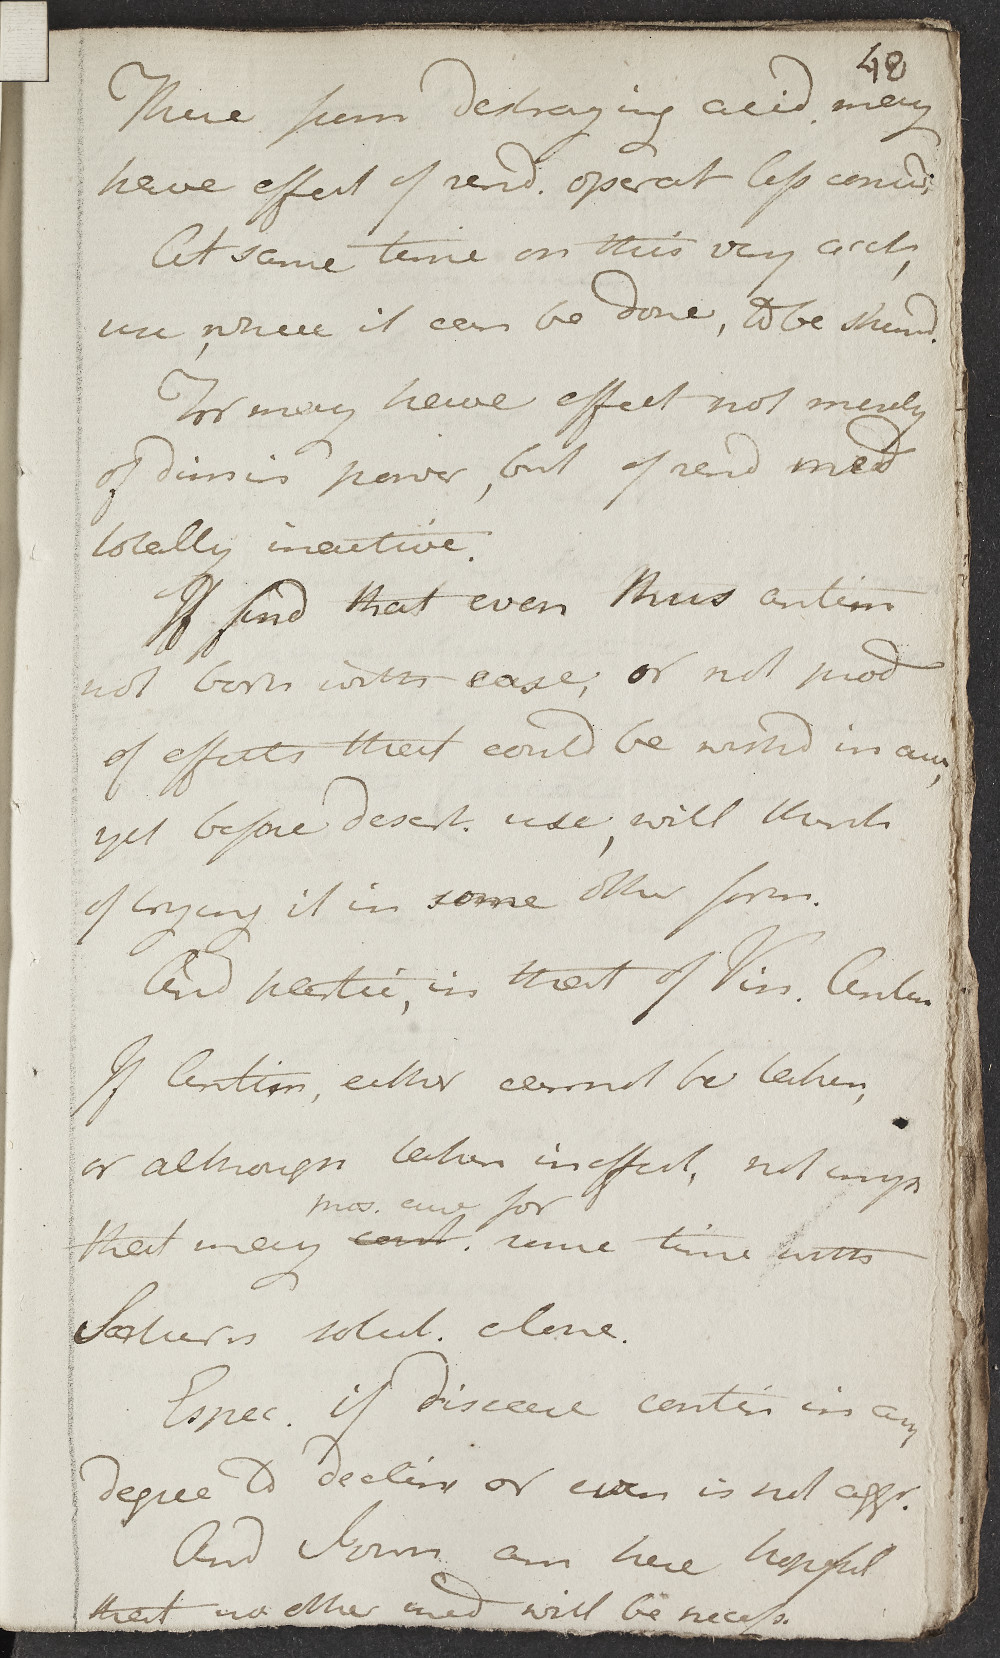 48
These from destroying acid. may
have effect of rend. operat less
At same time on this very acct,
use, where it can be done, to be shund.
For may have effect not merely
of dimin power, but of rend med
totally inactive.
If find that even thus antim
not born with ease, or not prod
of effects that could be wishd in
yet before desert. use, will think
of trying it in some other form.
And partic, in that of Vin. Antim
If Antim, either cannot be taken,
or although taken ineffect, not
mos. cure for
that may cont. some time with
solut. alone.
Espec. if disease contin in any
degree to decline or even is not aggr.
And I own am here hopeful
that no other med will be necess.